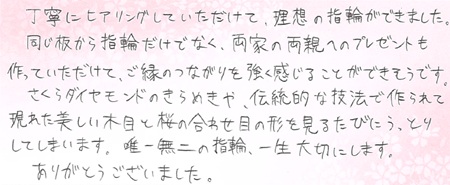 丁寧にヒアリングしていただけて、理想の指輪ができました。
同じ板から指輪だけでなく、両家の両親へのプレゼントも
作っていただけて、ご縁のつながりを強く感じることができそうです。
さくらダイヤモンドのきらめきや、伝統的な技法で作られて
現れた美しい木目と桜の合わせ目の形を見るたびにう、とり
してしまいます。唯一無二の指輪、一生大切にします。
ありがとうございました。